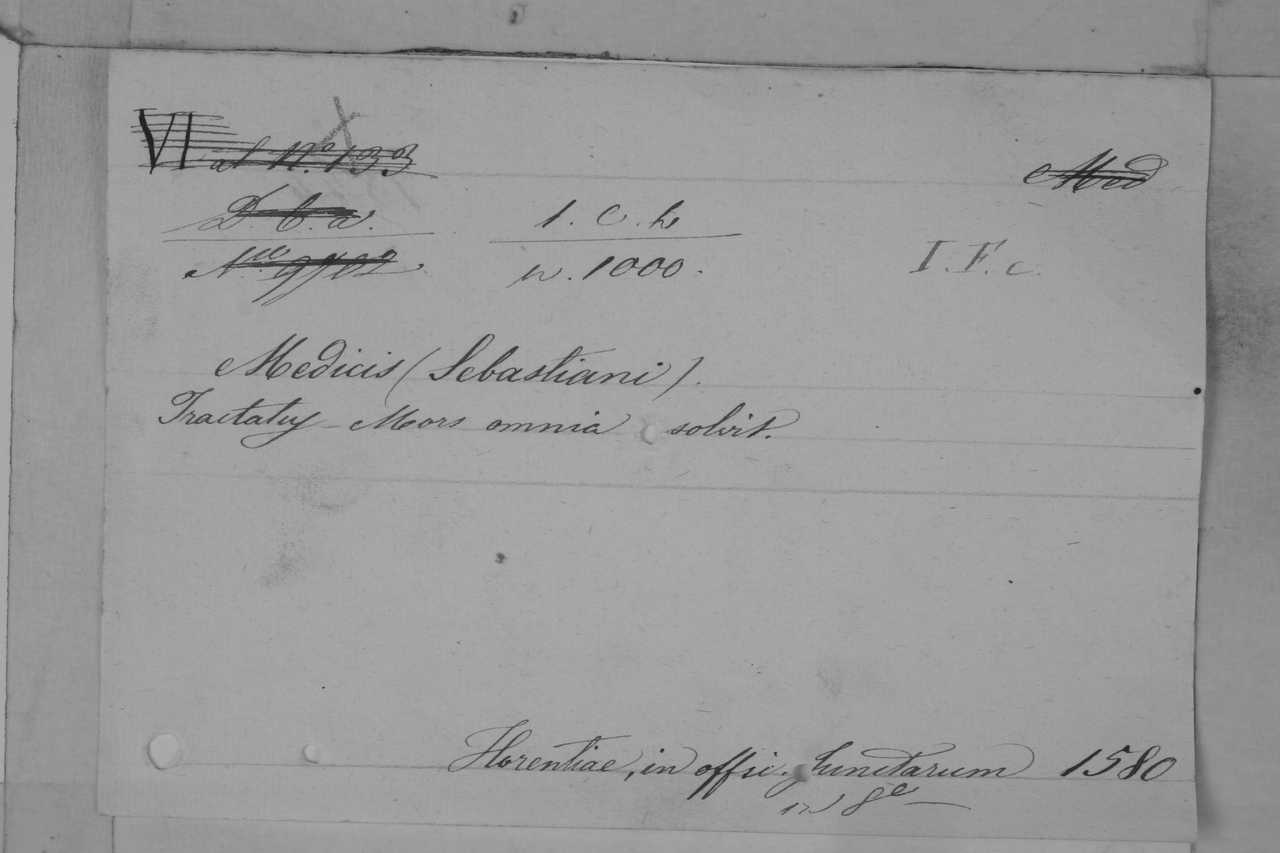 VI al N.º 133
Med
D. b. a.
1. C. h
I. F. c.
n. 1000.
Medicis (Sebastiani).
Tractatus Mors omnia solvit.
Florentiae, in offic. Junctarum 1580
in 8º